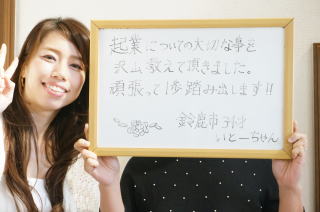 起業についての大切な事を
沢山教えて頂きました。
頑張って1歩踏み出します!!
鈴鹿市
いとーちゃん